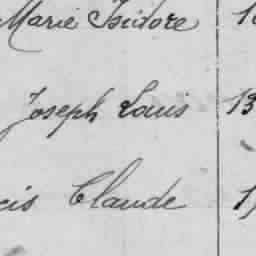 Marie Isidore
Joseph Louis 13
Claude